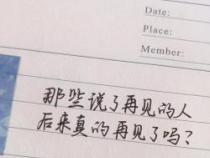 Date:
Place:
Member:
那些说了再见的人
后来真的再见了吗?